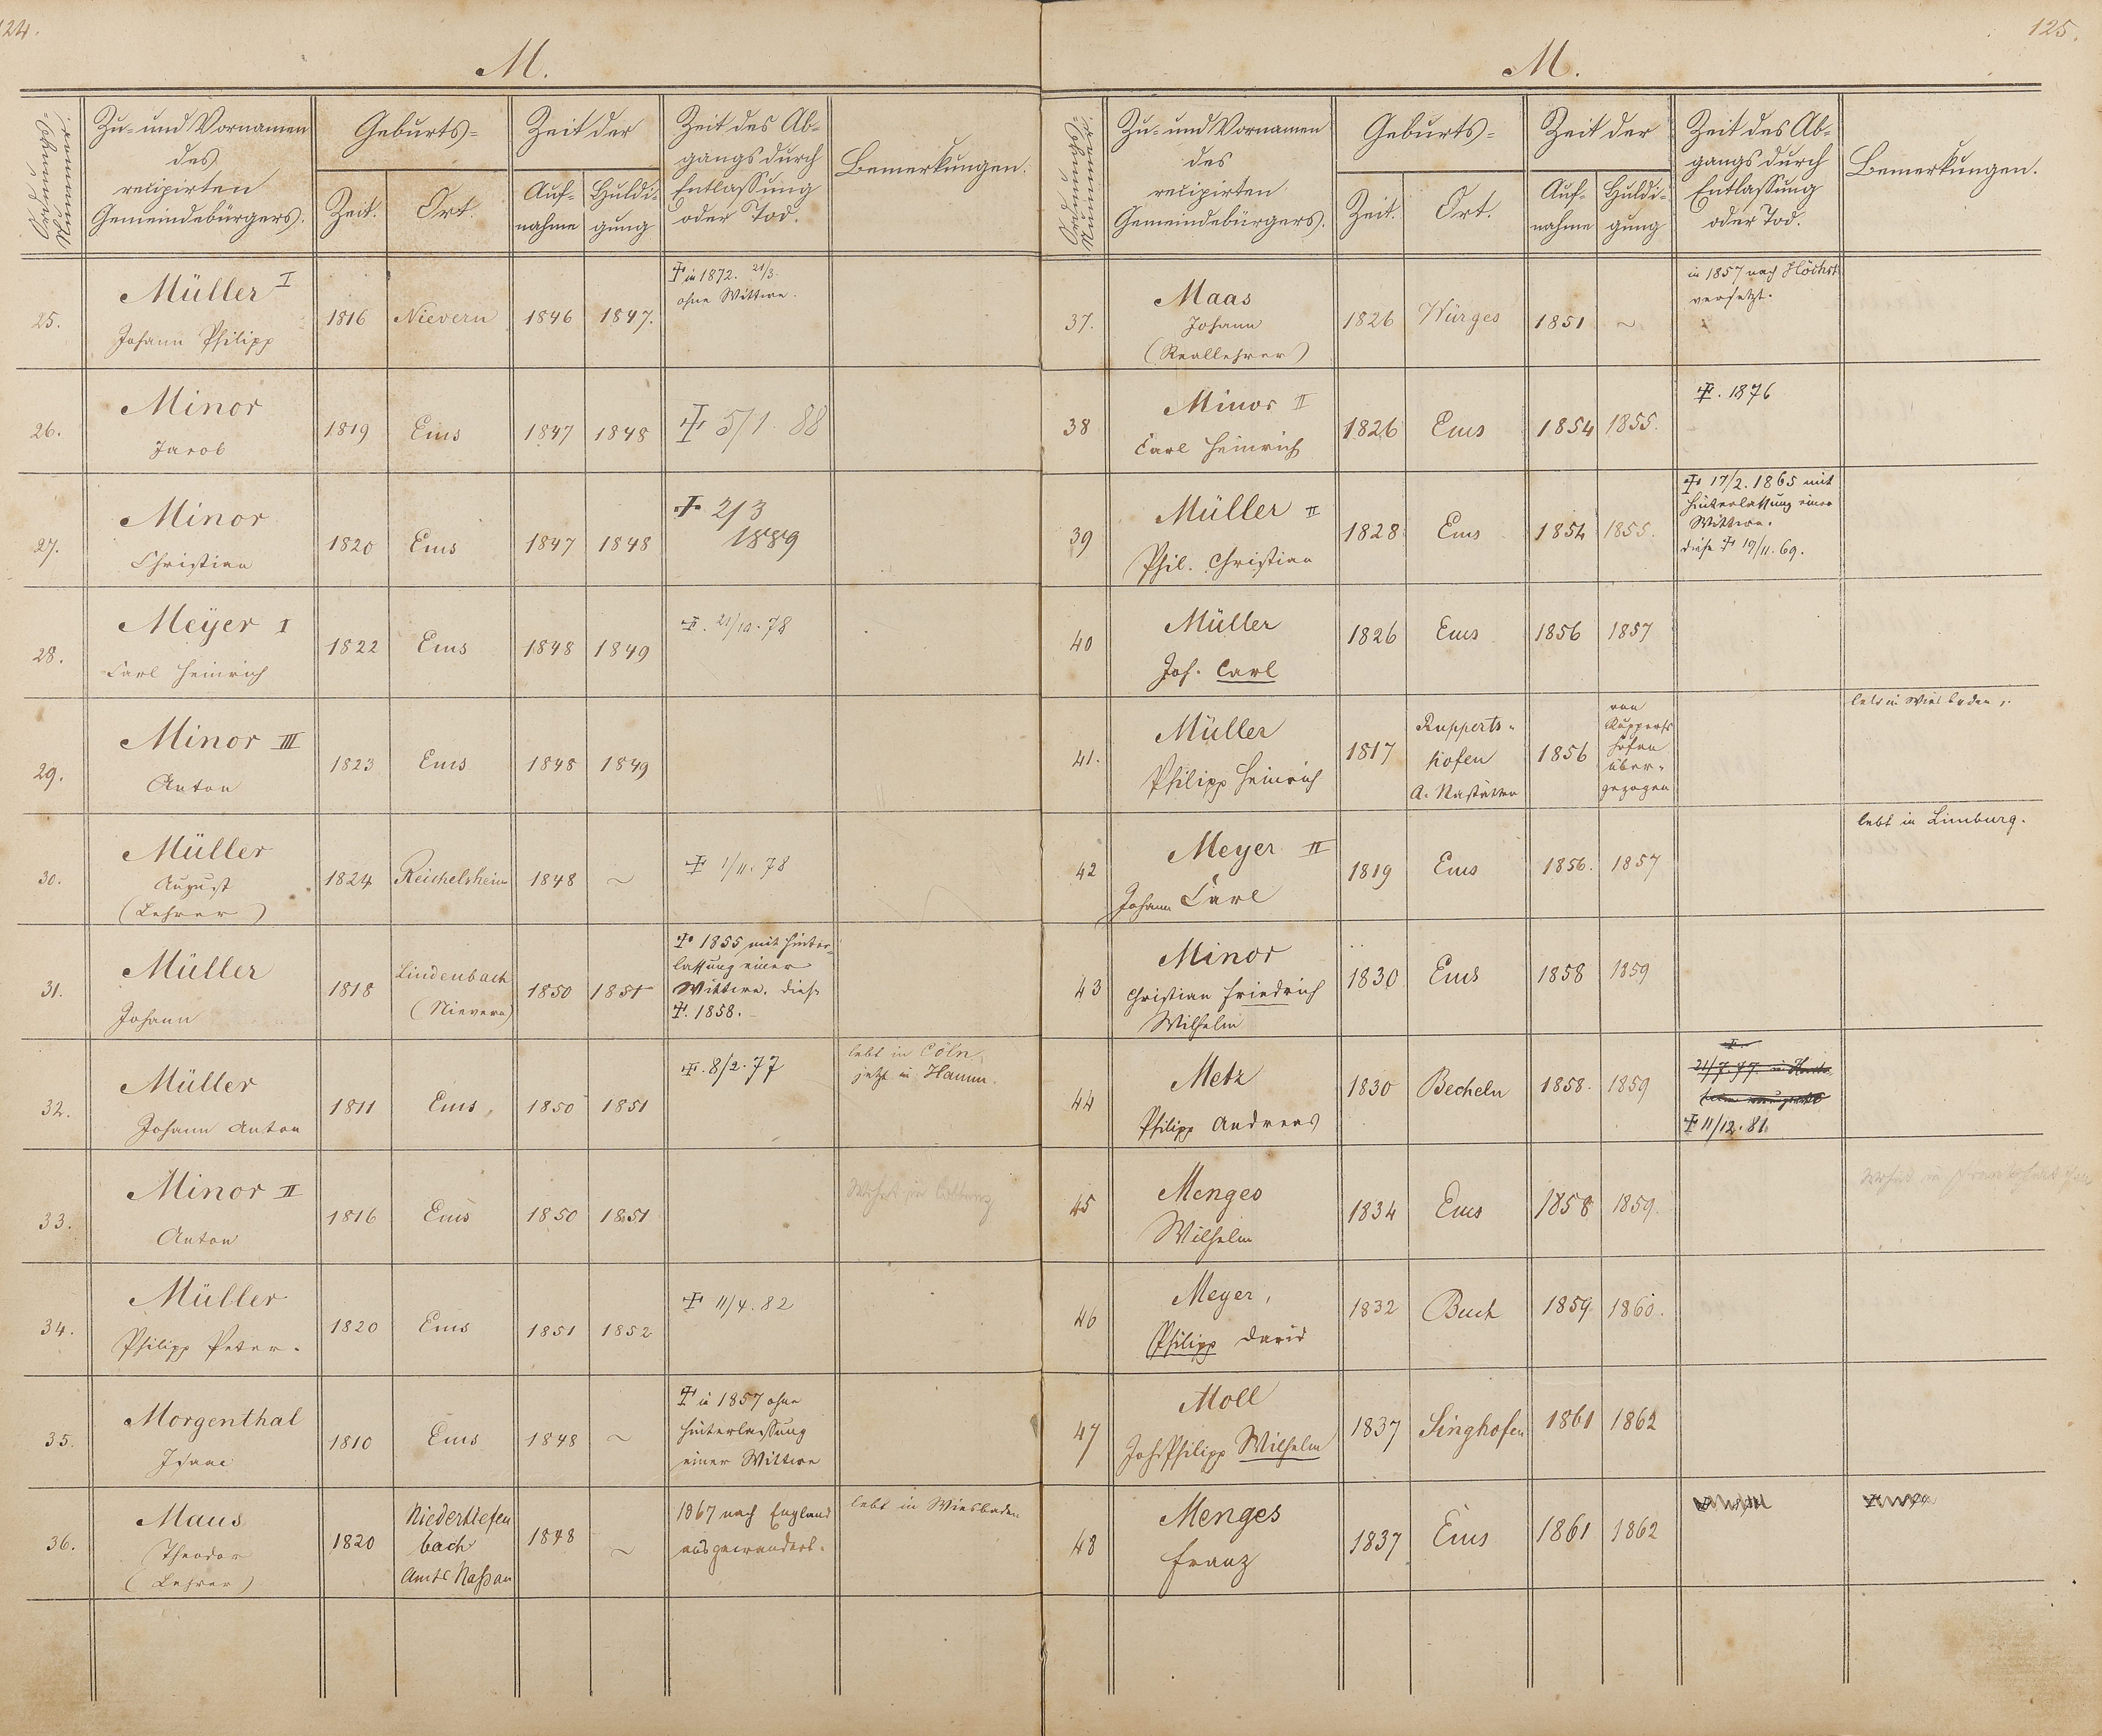 124.
M.
Ordnungs-
Nummer.
Zu- und Vornamen
des
recipirten
Gemeindebürgers.
Geburts-
Zeit.
Ort.
Zeit der
Auf-
nahme
Huldi-
gung
Zeit des Ab-
gangs durch
Entlassung
oder Tod.
Bemerkungen.
25.
Müller I
Johann Philipp
1816
Nievern
1846
1847.
† in 1872. 21/3.
ohne Wittwe.
26.
Minor
Jacob
1819
Ems
1847
1848
† 5/1. 88
27.
Minor
Christian
1820
Ems
1847
1848
† 2/3
1889
28.
Meÿer I
Carl Heinrich
1822
Ems
1848
1849
†. 21/10. 78
29.
Minor III
Anton
1823
Ems
1848
1849
30.
Müller
August
(Lehrer)
1824
Reichelsheim
1848
~
† 1/11. 78
31.
Müller
Johann
1818
Lindenbach
(Nievern)
1850
1851
† 1855 mit Hinter-
lassung einer
Wittwe. diese
†. 1858.
32.
Müller
Johann Anton
1811
Ems,
1850
1851
†. 8/2. 77
lebt in Cöln,
jetzt in Hamm.
33.
Minor II
Anton
1816
Ems
1850
1851
Wohnt in Coblenz
34.
Müller
Philipp Peter.
1820
Ems
1851
1852
† 11/4. 82
35.
Morgenthal
Isaac
1810
Ems
1848
~
† in 1857 ohne
Hinterlassung
einer Wittwe
36.
Maus
Theodor
(Lehrer)
1820
Niedertiefen
bach
Amts Naßau
1848
~
1867 nach England
ausgewandert.
lebt in Wiesbaden
125.
M.
Ordnungs-
Nummer.
Zu- und Vornamen
des
recipirten
Gemeindebürgers.
Geburts-
Zeit.
Ort.
Zeit der
Auf-
nahme
Huldi-
gung
Zeit des Ab-
gangs durch
Entlassung
oder Tod.
Bemerkungen.
37.
Maas
Johann
(Reallehrer)
1826
Würges
1851
~
in 1857 nach Höchst
versetzt.
38
Minor II
Carl Heinrich
1826
Ems
1854
1855.
†. 1876
39
Müller II
Phil. Christian
1828
Ems
1854
1855.
† 17/2. 1865 mit
Hinterlassung einer
Wittwe.
diese † 19/11. 69.
40
Müller
Joh. Carl
1826
Ems
1856
1857
41.
Müller
Philipp Heinrich
1817
Rupperts-
hofen
A. Nastätten
1856
von
Rupperts
hofen
über-
gezogen
lebt in Wiesbaden,
42
Meyer II
Johann Carl
1819
Ems
1856.
1857
lebt in Limburg.
43
Minor
Christian Friedrich
Wilhelm
1830
Ems
1858
1859
44
Metz
Philipp Andreas
1830
Becheln
1858.
1859
†.
21/7. 77. in
† 11/12. 81.
45
Menges
Wilhelm
1834
Ems
1858
1859.
Wohnt in
46
Meyer,
Philipp David
1832
Buch
1859.
1860.
47
Moll
Joh. Philipp Wilhelm
1837
Singhofen
1861
1862
48
Menges
Franz
1837
Ems
1861
1862